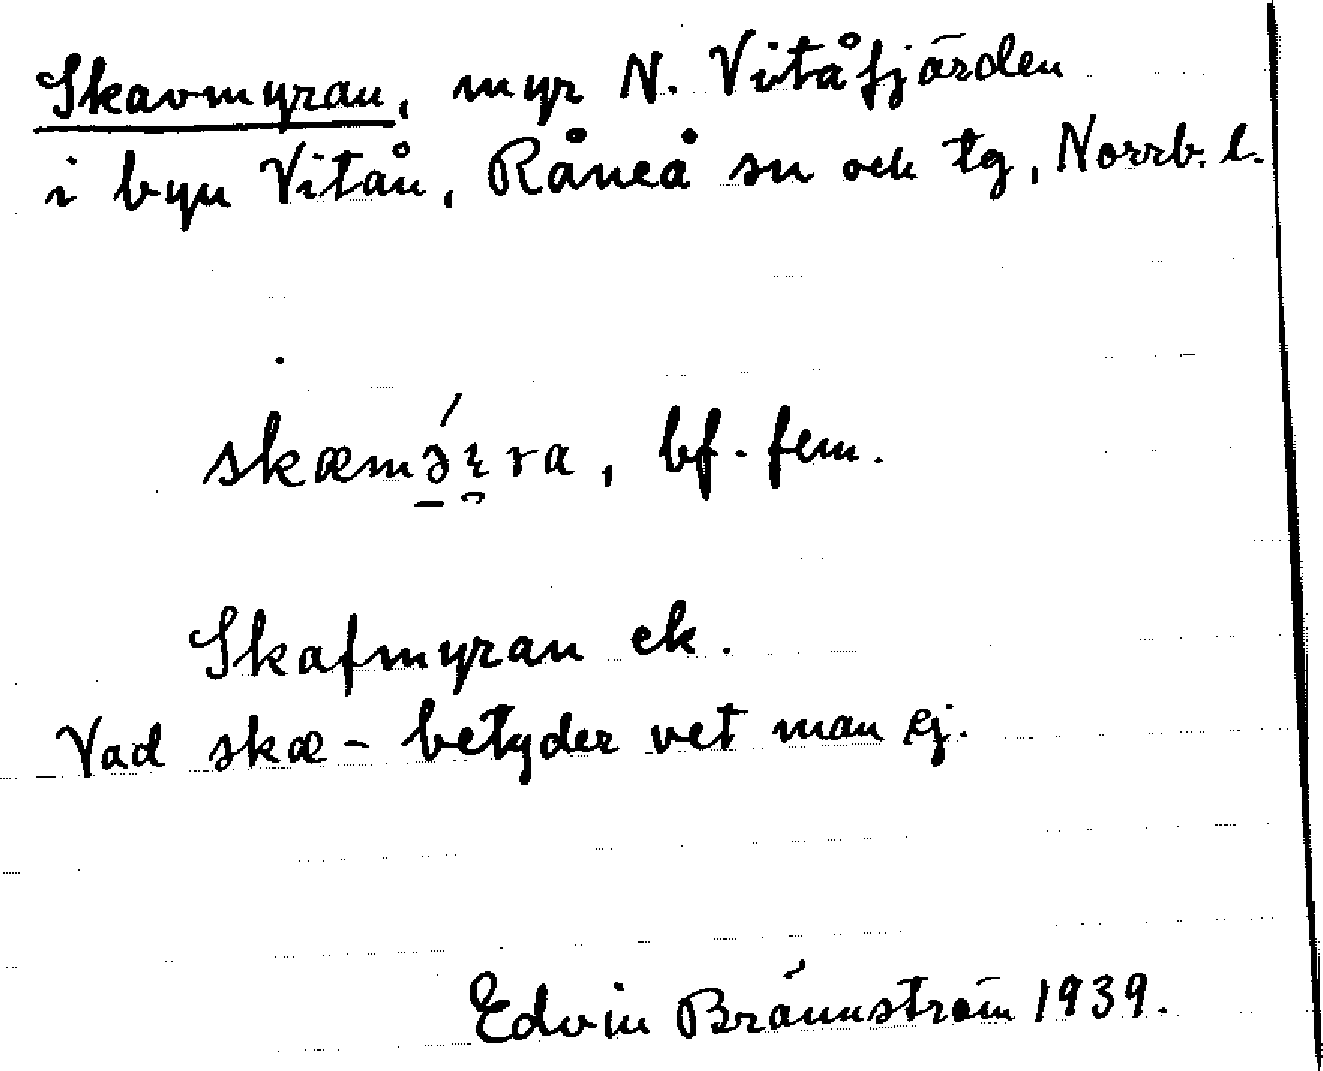 Skavmyran, myr N. Vitåfjärden
i byn Vitån, Råneå sn och tg, Norrb. l.
skæmə̱́ı̯ra, bf. fem.
Skafmyran ek.
Vad skæ- betyder vet man ej.
Edvin Brännström 1939.